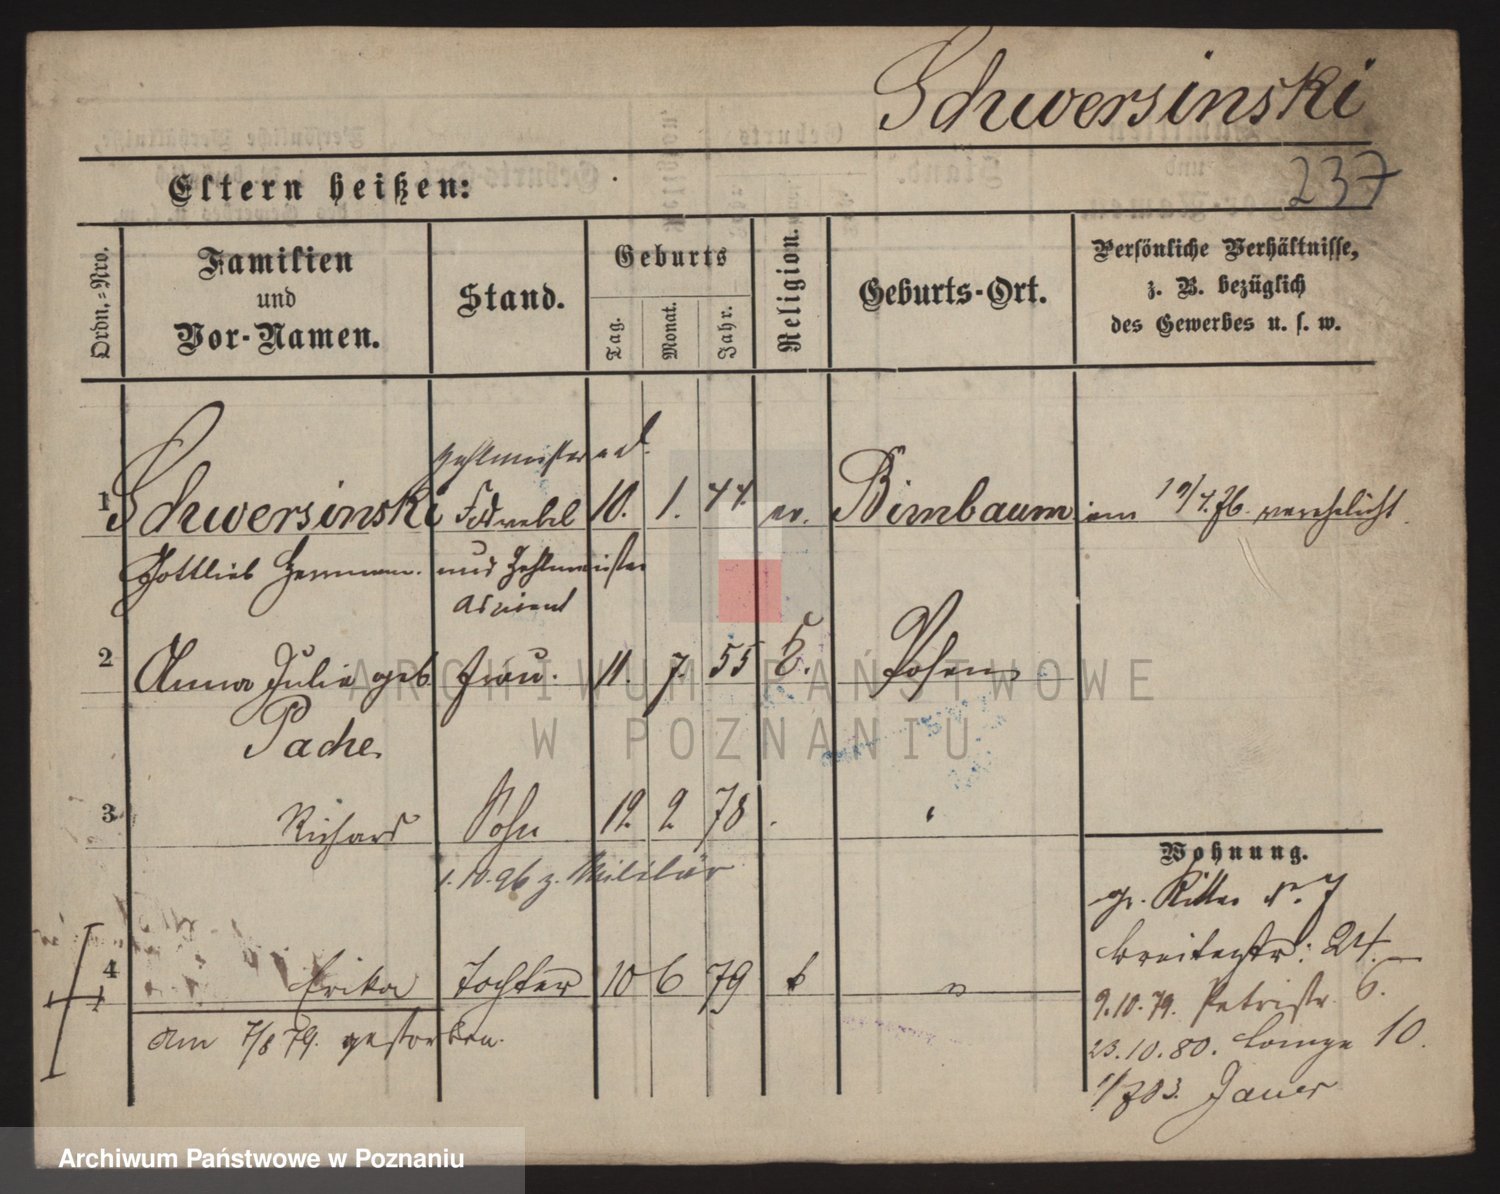 Schwersinski
237
Eltern heißen:
Ordn.-Nro.
Familien
und
Vor-Namen.
Stand.
Geburts
Tag.
Monat.
Jahr.
Religion.
Geburts-Ort.
Persönliche Verhältnisse,
z. B. bezüglich
des Gewerbes u. s. w.
Zahlmeister
1 Schwersinski Feldwebel 10. 1. 44. ev. Birnbaum am 19/4.76. verehelicht.
Gottlieb Hermann. und Zahlmeister
Aspirant
2 Anna Julie geb Frau. 11. 7. 55 E. Posen
Pache
3 Richard Sohn 12. 2. 78
1.10.96 z. Militär
4 Erika Tochter 10 6 79
Am 7/8 79. gestorben.
Wohnung.
gr. Ritter Nr. 7
Breitestr: 24.
9.10.79. Petristr. 6.
23.10.80. Lange 10.
Jauer
ARCHIWUM PAŃSTWOWE
W POZNANIU
Archiwum Państwowe w Poznaniu